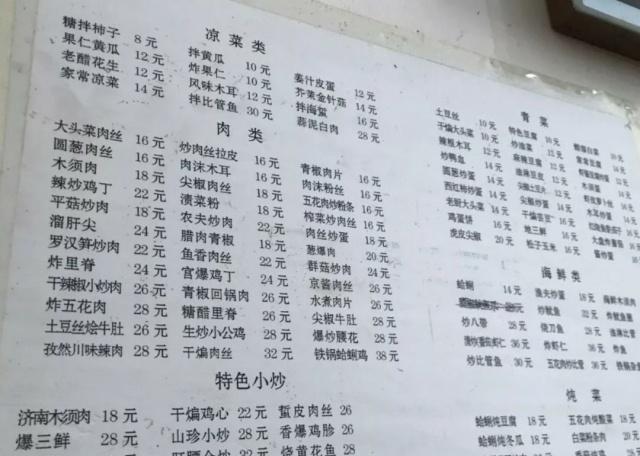 凉菜类
糖拌柿子 8元 拌黄瓜 10元 姜汁皮蛋 12元
果仁黄瓜 12元 炸果仁 10元 芥茉金针菇 14元
老醋花生 12元 风味木耳 12元 拌海蜇 16元
家常凉菜 14元 拌比管鱼 30元 蒜泥白肉 28元
肉类
大头菜肉丝 16元 炒肉丝拉皮 16元 青椒肉片 16元
圆葱肉丝 16元 肉沫木耳 16元 肉沫粉丝 16元
木须肉 16元 尖椒肉丝 18元 五花肉炒粉条 16元
辣炒鸡丁 22元 渍菜粉 18元 榨菜炒肉丝 16元
平菇炒肉 18元 农夫炒肉 22元 肉丝炒蛋 18元
溜肝尖 24元 腊肉青椒 18元 葱爆肉 20元
罗汉笋炒肉 22元 鱼香肉丝 22元 群菇炒肉 24元
炸里脊 24元 宫爆鸡丁 24元 京酱肉丝 26元
干辣椒小炒肉 26元 青椒回锅肉 26元 水煮肉片 26元
炸五花肉 28元 糖醋里脊 26元 尖椒牛肚 28元
土豆丝烩牛肚 28元 生炒小公鸡 28元 爆炒腰花 28元
孜然川味辣肉 28元 干煸肉丝 32元 铁锅蛤蜊鸡 38元
特色小炒
济南木须肉 18元 干煸鸡心 22元 蜇皮肉丝 26
爆三鲜 28元 山珍小炒 28元 香爆鸡胗
烧黄花鱼
青菜
土豆丝 10元 特色豆腐 10元
干煸大头菜 10元 炒油菜 12元 家常豆腐
辣椒木耳 12元 麻辣豆腐 12元
炒鸭血 14元
圆葱炒蛋 14元 木须蛋
西红柿炒蛋 14元 尖椒炒蛋 14元 木耳炒蛋
老厨大头菜 地三鲜
鸡蛋饼 16元 松子玉米
虎皮尖椒 20元 酱炒蛋
海鲜类
蛤蜊 14元 渔夫炒蛋 18元
炒鱿鱼 32元
炒八带 28元 烧刀鱼 28元
炸虾仁 36元
炒比管鱼 30元 五花肉炒比管 36元
炖菜
蛤蜊炖豆腐 18元 五花肉炖酸菜
蛤蜊炖冬瓜 18元 白菜粉条肉